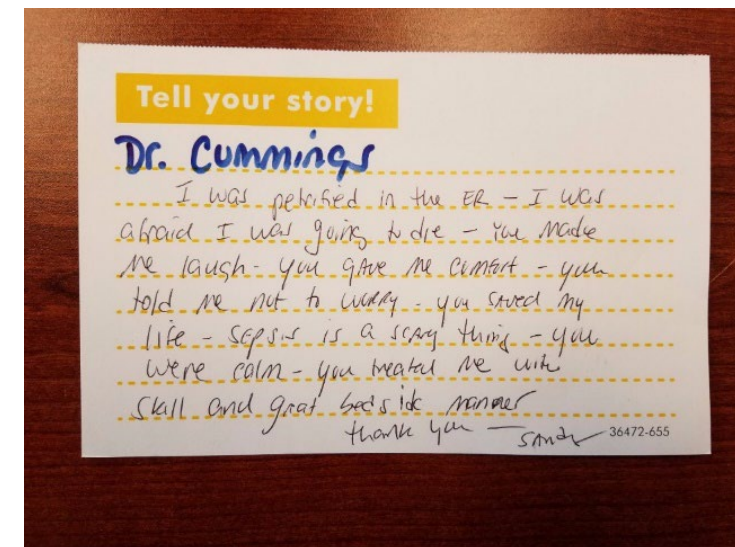 Tell your story!
Dr. Cummings
I was petrified in the ER - I was
afraid I was going to die - You made
me laugh - you gave me comfort - you
told me not to worry - you saved my
life - sepsis is a scary thing - you
were calm - you treated me with
skill and great bedside manner
thank you - Sandy
36472-655